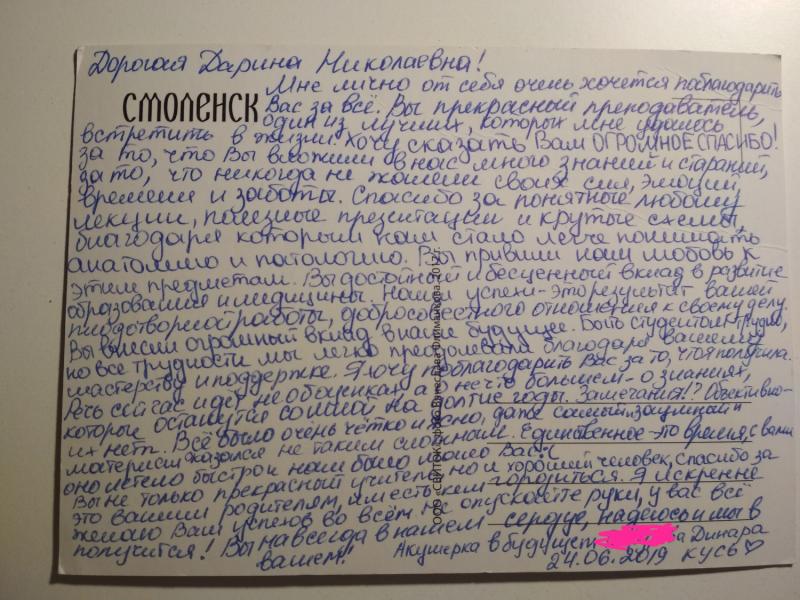 Дорогая Дарина Николаевна!
Мне лично от себя очень хочется поблагодарить
СМОЛЕНСК
Вас за всё. Вы прекрасный преподаватель,
один из лучших, которых мне удалось
встретить в жизни. Хочу сказать Вам ОГРОМНОЕ СПАСИБО!
за то, что Вы вложили в нас много знаний и стараний,
за то, что никогда не жалели своих сил, эмоций,
времени и заботы. Спасибо за понятные любому
лекции, полезные презентации и крутые схемы,
благодаря которым нам стало легче понимать
анатомию и патологию. Вы привили нам любовь к
этим предметам. Вы достойный и бесценный вклад в развитие
образования и медицины. Наши успехи - это результат вашей
плодотворной работы, добросовестного отношения к своему делу.
Вы внесли огромный вклад в наше будущее. Быть студентом трудно,
но все трудности мы легко преодолевали благодаря вашему
мастерству и поддержке. Я хочу поблагодарить Вас за то, что я получила.
Речь сейчас идет не об оценках, а о нечто большем - о знаниях,
которые останутся со мной на долгие годы. Замечания!? Объективно -
их нет. Всё было очень чётко и ясно, даже самый заумный
материал казался не таким сложным. Единственное - это время, с вами
оно летело быстро и нам было мало Вас:(
Вы не только прекрасный учитель, но и хороший человек, спасибо за
это вашим родителям, им есть кем гордиться. Я искренне
желаю Вам успехов во всём. Не опускайте руки, у вас всё
получится! Вы навсегда в нашем сердце, надеюсь и мы в
вашем!
Акушерка в будущем а Динара
24.06.2019 кусь♡
ООО «СВИТОК», фото Вячеслава Филимонкова, 2012 г.